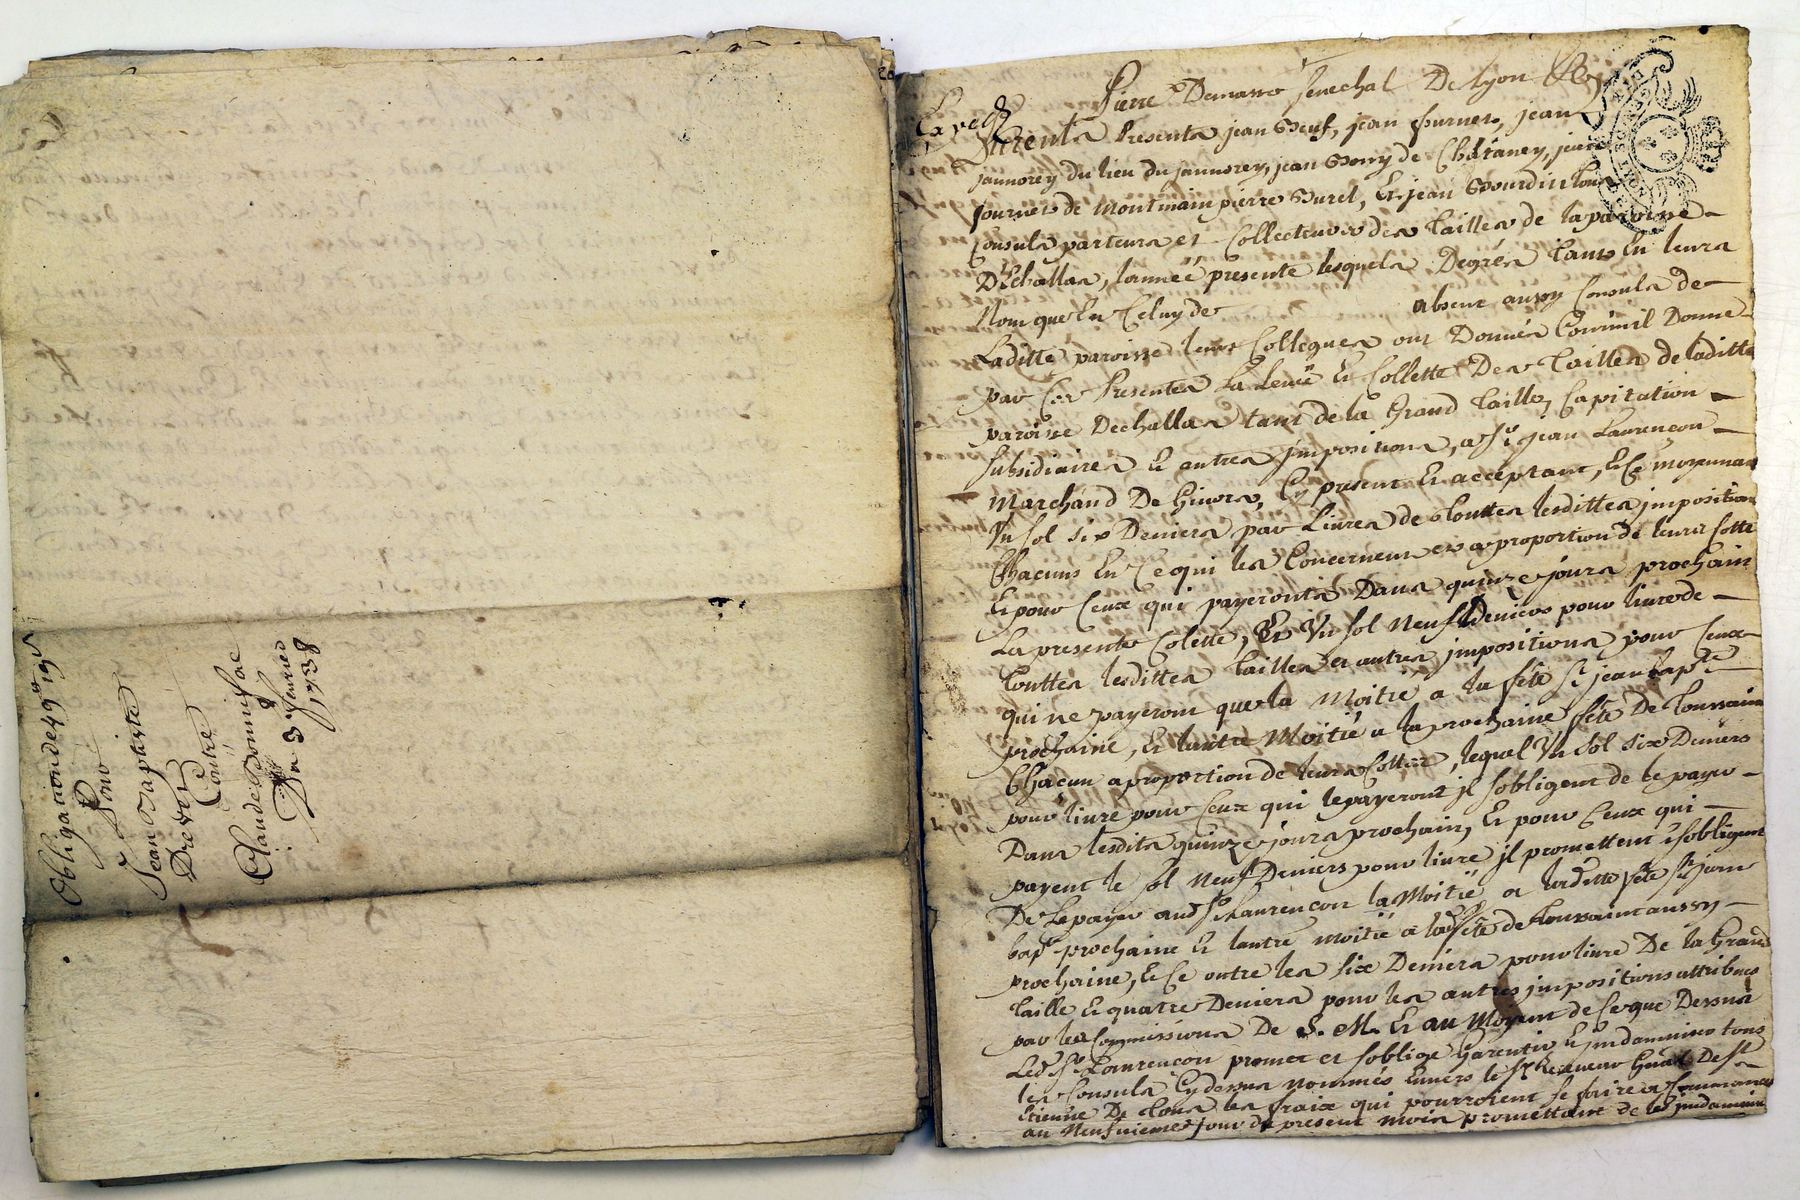 Obligation de 49ᵗᵗ 19ˢ
Pour
Sʳ Jean Baptiste
Dreuon
Contre
Claude Bonniface
Du 3ᵉ feurier
1738
Pierre Demasso senechal De Lyon
Presents jean Neuf, jean fournel, jean
jaunorey du lieu du jaunorey, jean Bony de Chataney, jean
fournel de Montmain pierre Burel, Et jean Bourdin tous
Consuls parteurs et Collecteurs des tailles de la paroisse
D'Echallas, lannée presente lesquels Degrés tant En leurs
Nom que En Celuy de absent aussy Consuls de
Laditte paroisse leurs Collegues ont Donnés Comme il Donne
par Ces Presentes La leueë Et Collette Des tailles de laditte
paroisse Dechallas tant de la Grand taille, Capitation
subsidiaires Et autres jmpositions, a Sʳ jean Laurençon
Marchand De Giuors, Cy present Et acceptant, Et Ce moyennant
Vn sol six Deniers par Liures de touttes lesdittes jmpositions
Chacuns En Ce qui les Concernent et a proportion de leurs Cotte
Et pour Ceux qui payeronts Dans quinze jours prochain
La presente Colette, Et Vn sol neuf Deniers pour liure de
touttes lesdittes tailles et autres jmpositions pour Ceux
qui ne payeront que la Moitie a la fête Sᵗ jean bapᵗᵉ
prochaine, Et lautre Moitié a la prochaine fête De toussaint
Chacun a proportion de leurs Cottes, lequel Vn sol six Deniers
pour liure pour Ceux qui le payeront jl sobligent de le payer
Dans lesdits quinze jours prochain, Et pour Ceux qui
payent le sol neuf Deniers pour liure jl promettent & sobligent
De Le payer audᵗ Sʳ Laurençon la Moitié a laditte fête Sᵗ jean
bapᵗ prochaine Et lautre moitié a la fête de toussaint aussy
prochaine, Et Ce outre les six Deniers pour liure De la Grand
taille Et quatre Deniers pour les autres jmpositions attribués
par les Commissions De S. M. Et au Moyent de Ce que Dessus
Ledᵗ Sʳ Laurençon promet et soblige Garentir Et jndamniser tous
les Consuls Cy dessus nommés Enuers le Sʳ Receueur De Sᵗ
Etienne De tous les fraix qui pourroient se faire a Commancer
au Neufuieme jour du present mois promettant de les jndamniser